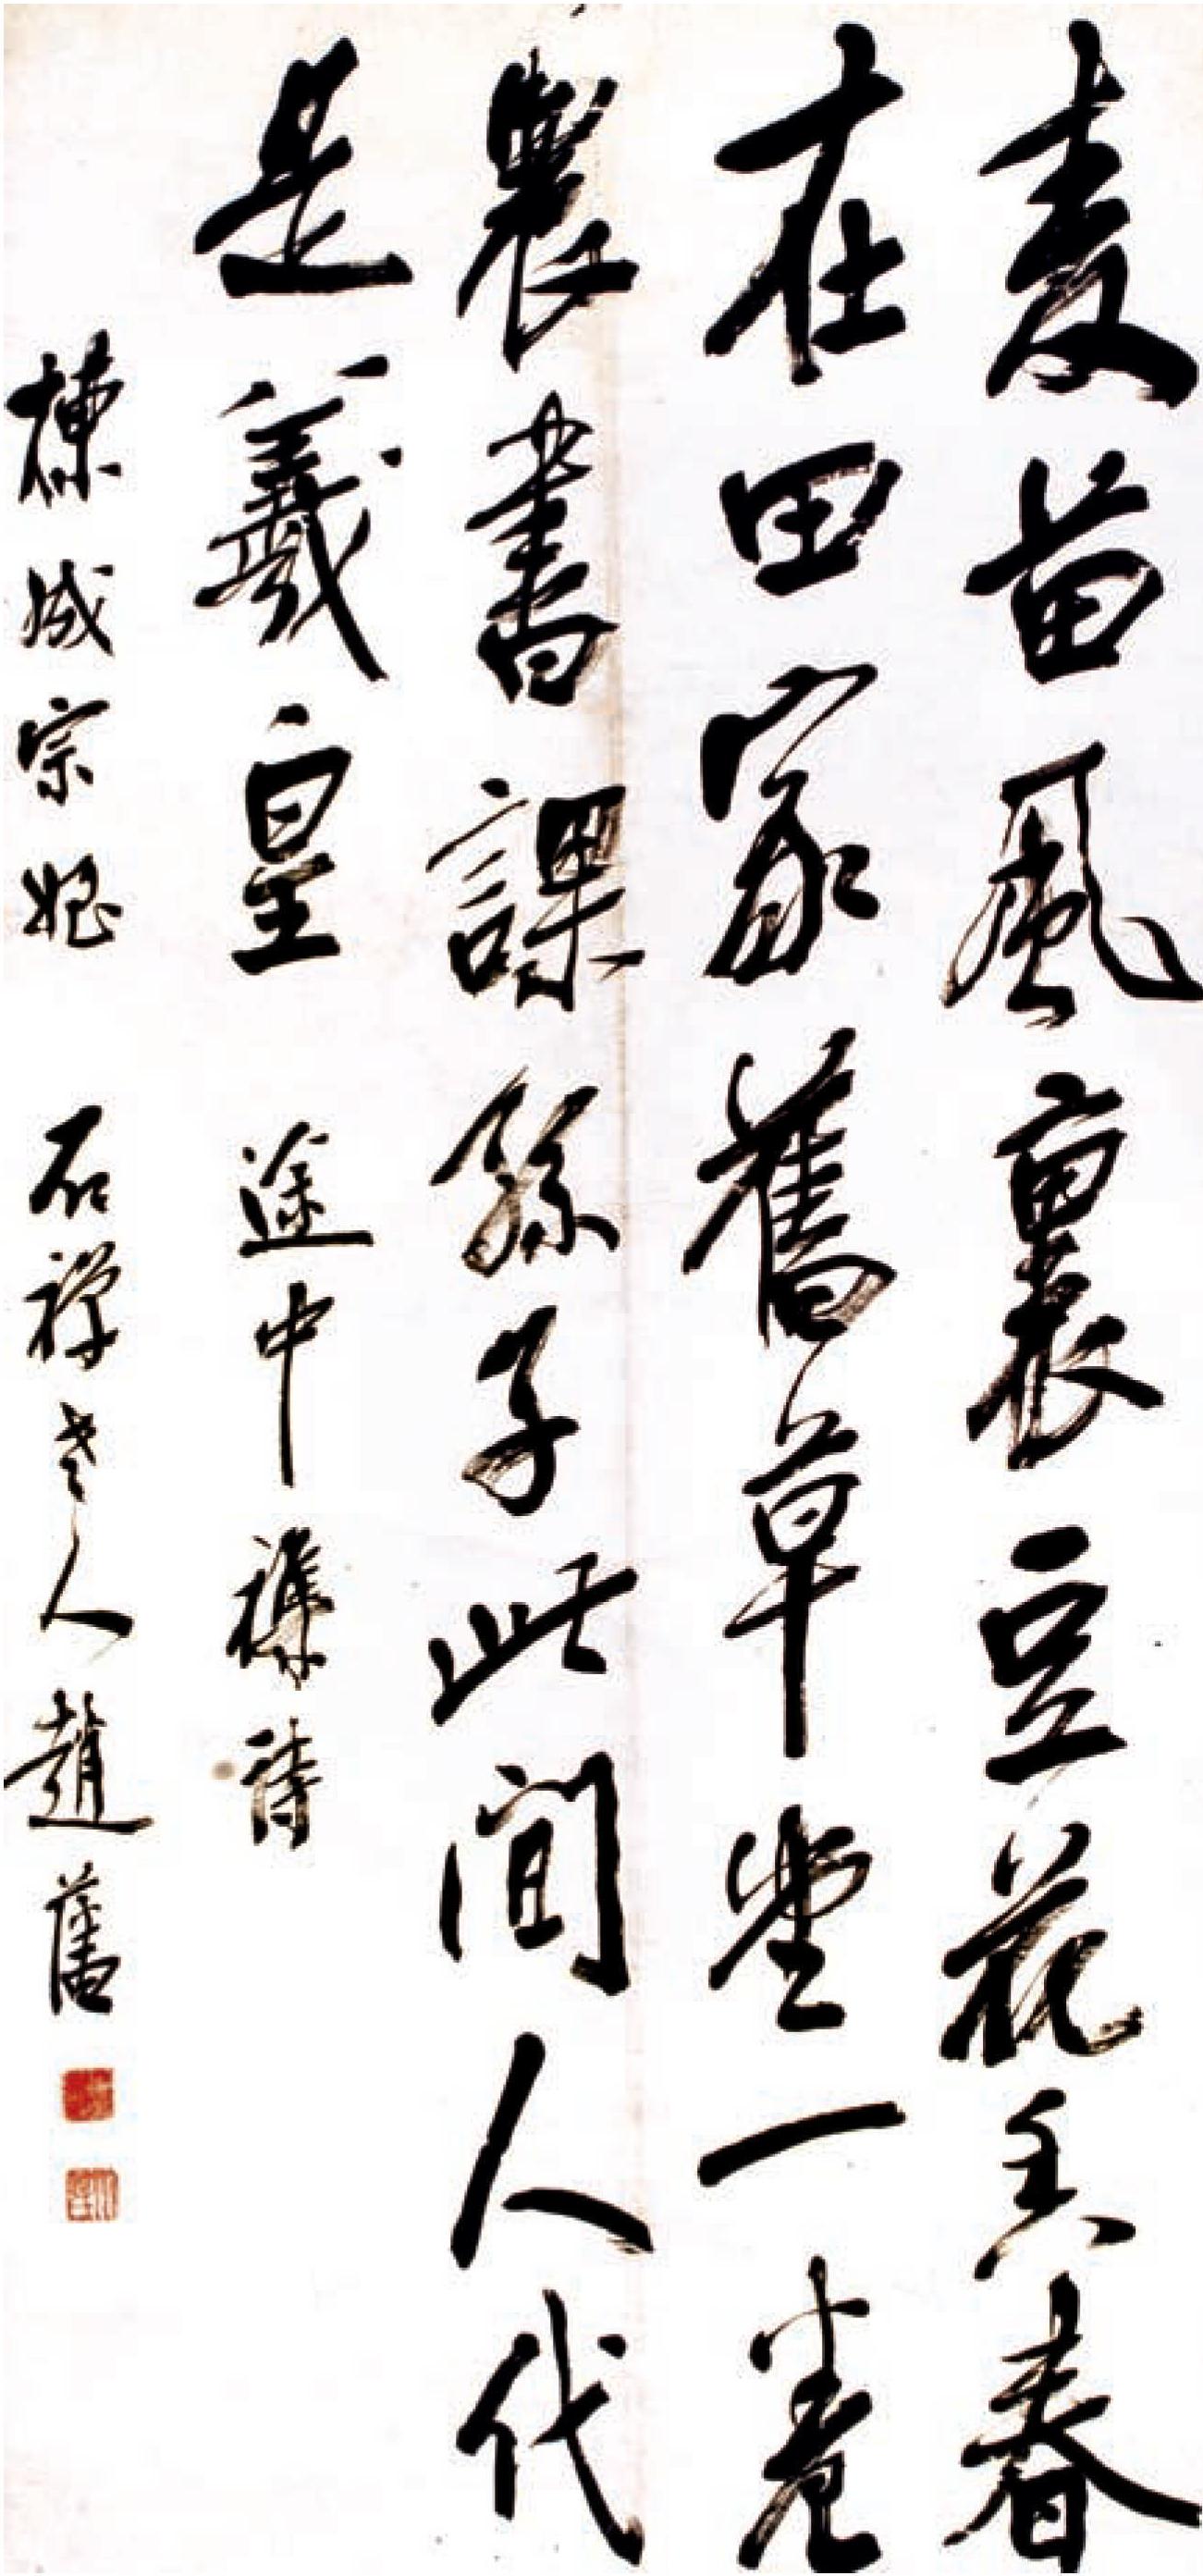 麦苗風裏豆花香春
在田家舊草堂一卷
農書課孫子此間人代
是羲皇 途中襍詩
棟 宗 石禪老人趙藩